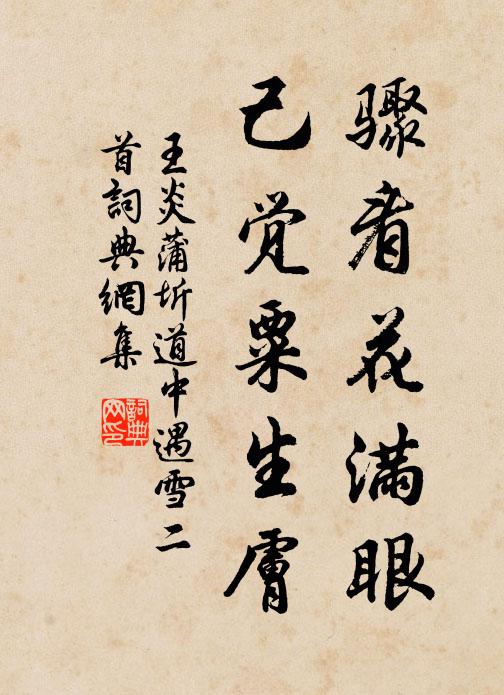 骤看花满眼
已觉粟生膚
王炎蒲圻道中遇雪二
首詞典網集
詞典
网印